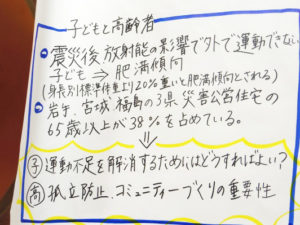 子どもと高齢者
・震災後放射能の影響で外で運動できない
子ども ⇒ 肥満傾向
(身長別標準体重より20%重いと肥満傾向とされる)
・岩手、宮城、福島の3県災害公営住宅の
65歳以上が38%を占めている。
⇓
子 運動不足を解消するためにはどうすればよい?
高 孤立防止、コミュニティーづくりの重要性